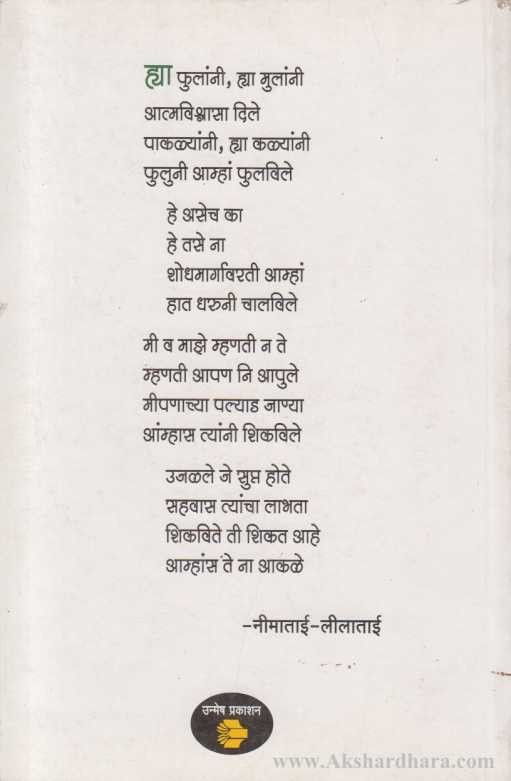 ह्या फुलांनी, ह्या मुलांनी
आत्मविश्वासा दिले
पाकळ्यांनी, ह्या कळ्यांनी
फुलुनी आम्हां फुलविले
हे असेच का
हे तसे ना
शोधमार्गावरती आम्हां
हात धरुनी चालविले
मी व माझे म्हणती न ते
म्हणती आपण नि आपुले
मीपणाच्या पल्याड जाण्या
आंम्हास त्यांनी शिकविले
उजळले जे सुप्त होते
सहवास त्यांचा लाभता
शिकविते ती शिकत आहे
आम्हांस ते ना आकळे
-नीमाताई-लीलाताई
उन्मेष प्रकाशन
www.Akshardhara.com